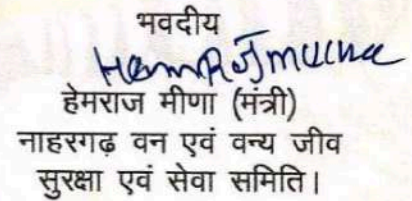 भवदीय
HemRaj meena
हेमराज मीणा (मंत्री)
नाहरगढ़ वन एवं वन्य जीव
सुरक्षा एवं सेवा समिति।